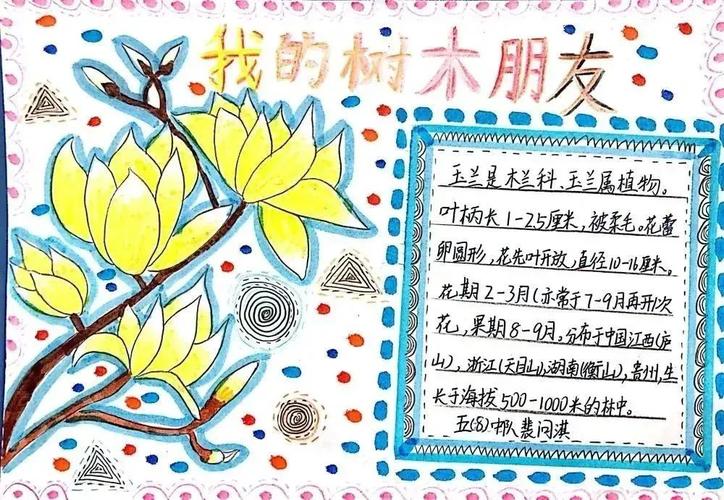 我的树木朋友
玉兰是木兰科、玉兰属植物。
叶柄长1-2.5厘米,被柔毛。花蕾
卵圆形,花先叶开放,直径10-16厘米。
花期2-3月(亦常于7-9月再开一次
花,果期8-9月。分布于中国江西(庐
山)、浙江(天目山)、湖南(衡山)、贵州,生
长于海拔500-1000米的林中。
五(8)中队 裴问淇